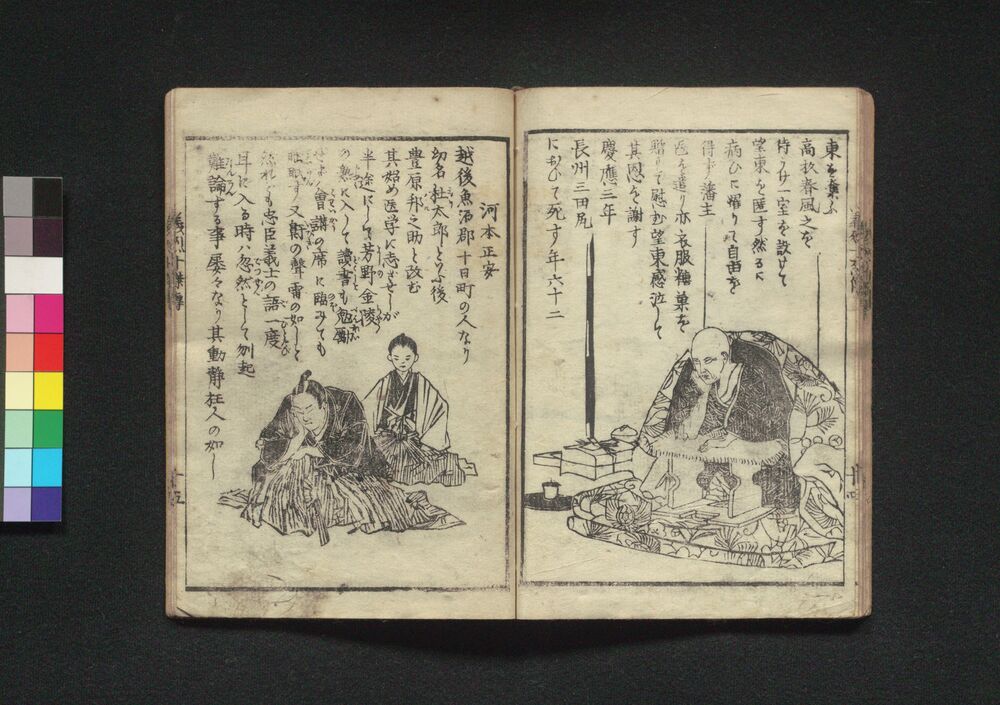 東を慕ふ
高杦春風之を
待うけ一室を設けて
望東を匿す然るに
病ひに罹りて自由を
得ず藩主
医を遣り亦衣服糖菓を
贈りて慰む望東感泣して
其恩を謝す
慶應三年
長州三田尻
におひて死す年六十二
河本正安
越後魚沼郡十日町の人なり
幼名杜太郎といふ後
豊原邦之助と改む
其始め医学に志せしが
半途にして芳野金陵
の塾に入りて讀書も勉
會講の席に臨みても
眠 又鼾の聲雷の如し
然れども忠臣義士の語一度
耳に入る時ハ忽然として刎起
難論する事屡々なり其動静狂人の如し